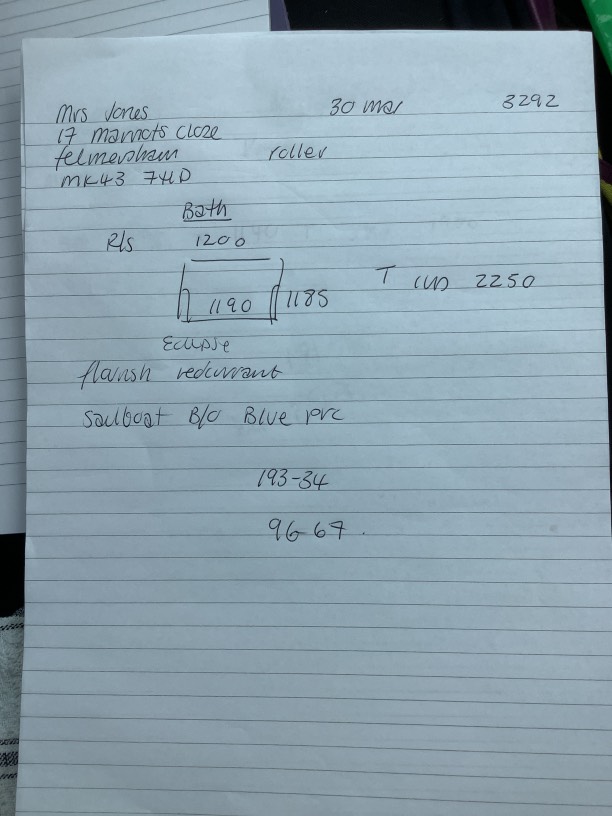 Mrs Jones 30 mar 3292
17 Marriots Close
felmersham roller
MK43 7HD
Bath
R/S 1200
1190 1185 T (W) 2250
Eclipse
flarish redcurrant
Sailboat B/O Blue pvc
193-34
96-67.